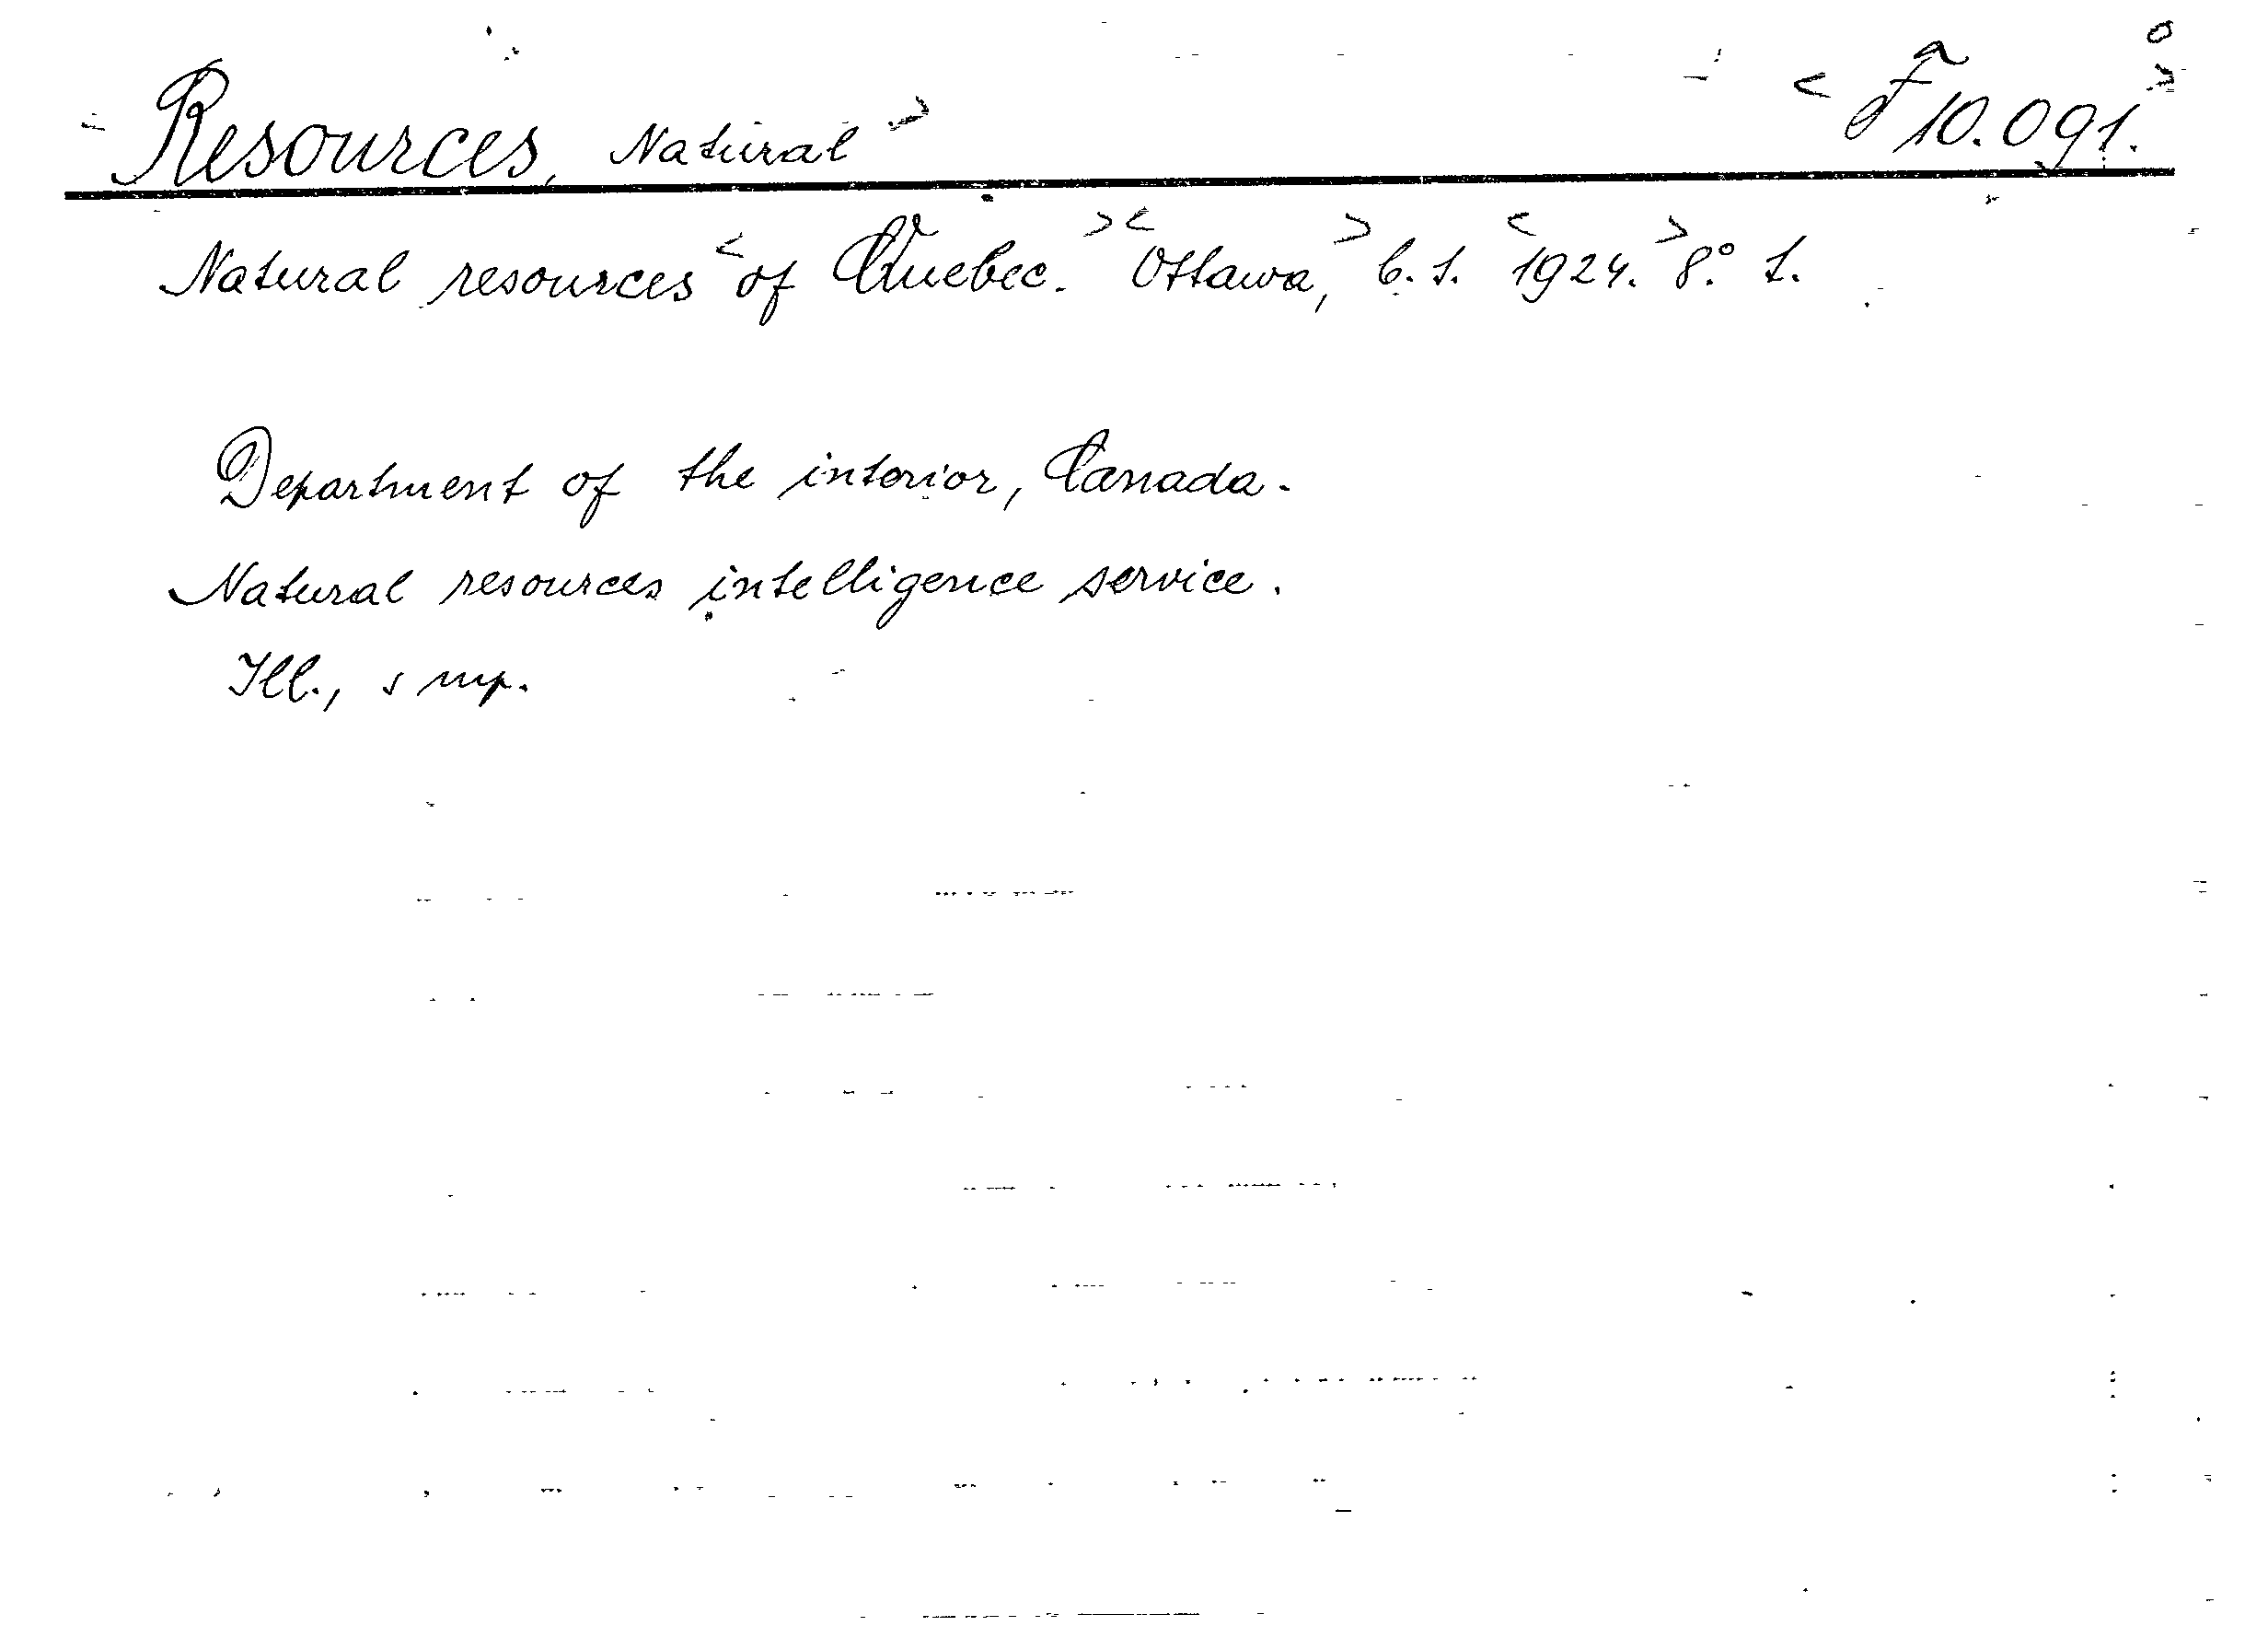 Resources, Natural > < F 10.091. >
Natural resources < of Quebec. > < Ottawa, > b. s. < 1924. > 8.° 1.
Department of the interior, Canada.
Natural resources intelligence service.
Ill., s mp.